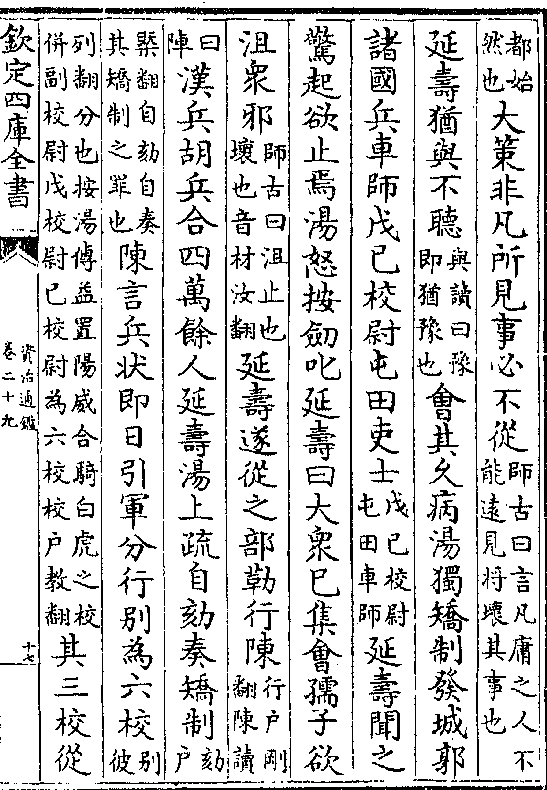 都始然也大策非凡所見事必不從師古曰言凡庸之人不能遠見將壞其事也
延壽猶與不聽與讀曰豫即猶豫也會其久病湯獨矯制發城郭
諸國兵車師戊己校尉屯田吏士戊己校尉屯田車師延壽聞之
驚起欲止焉湯怒按劒叱延壽曰大衆已集會孺子欲
沮衆邪師古曰沮止也壞也音材汝翻延壽遂從之部勒行陳行户剛翻陳讀
曰陣漢兵胡兵合四萬餘人延壽湯上疏自劾奏矯制劾户
槩翻自劾自奏其矯制之罪也陳言兵状即日引軍分行别為六校别彼
列翻分也按湯傳益置陽威合騎白虎之校併副校尉戊校尉己校尉為六校校户教翻其三校從
欽定四庫全書
資治通鑑
卷二十九
十七